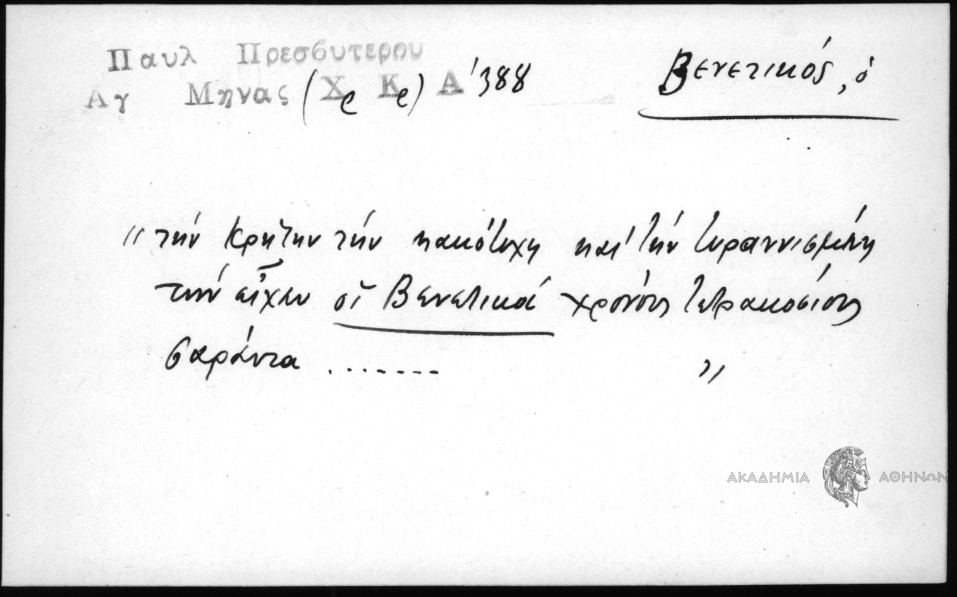 Παυλ Πρεσβυτερου
Αγ Μηνας (Χρ Κρ) Α' 388
Βενετικός, ὁ
„ τήν Κρήτην τήν κακότυχη καί τήν τυραννισμένη
τήν εἶχαν οἱ Βενετικοί χρόνους τετρακοσίους
σαράντα ....... „
ΑΚΑΔΗΜΙΑ ΑΘΗΝΩΝ